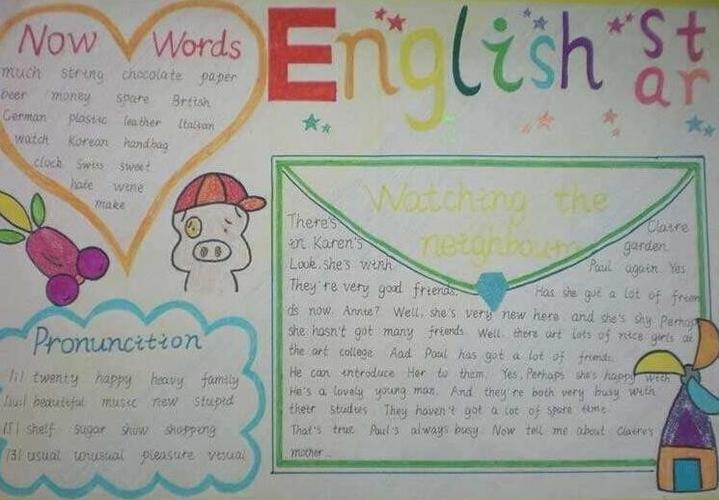 English Star
Now Words
much string chocolate paper
beer money spare British
German plastic leather Italian
watch Korean handbag
clock Swiss sweet
hate wine
make
Pronuncition
/i/ twenty happy heavy family
/ju:/ beautiful music new stupid
/ʃ/ shelf sugar show shopping
/ʒ/ usual unusual pleasure visual
Watching the
neighbours
There's Claire
in Karen's garden.
Look. she's with Paul again. Yes
They're very good friends. Has she got a lot of frien
ds now. Annie? Well, she's very new here and she's shy. Perhap
she hasn't got many friends. Well. there art lots of nice girls at
the art college. Aad Paul has got a lot of friends.
He can introduce Her to them. Yes. Perhaps she's happy with
He's a lovely young man. And they're both very busy with
their studies. They haven't got a lot of spare time.
That's true. Paul's always busy. Now tell me about Claire's
mother...